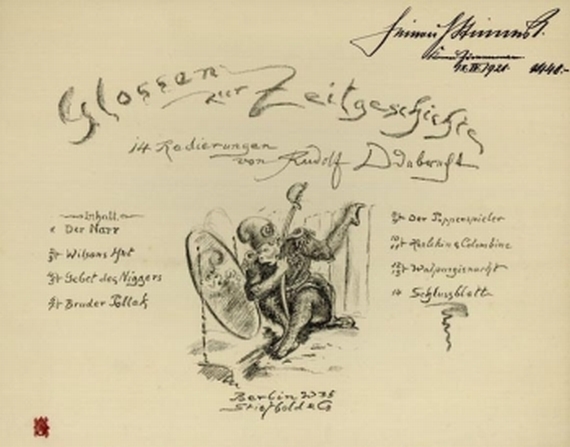 Heinrich Stinnes
IV. 1921
Glossen zur Zeitgeschichte
14 Radierungen
von Rudolf
Inhalt
Der Narr
Wilsons Hut
Gebet des Niggers
Bruder Pollak
Der Puppenspieler
Harlekin & Colombine
Walpurgisnacht
14 Schlussblatt
Berlin W 35
Stiefbold & Co